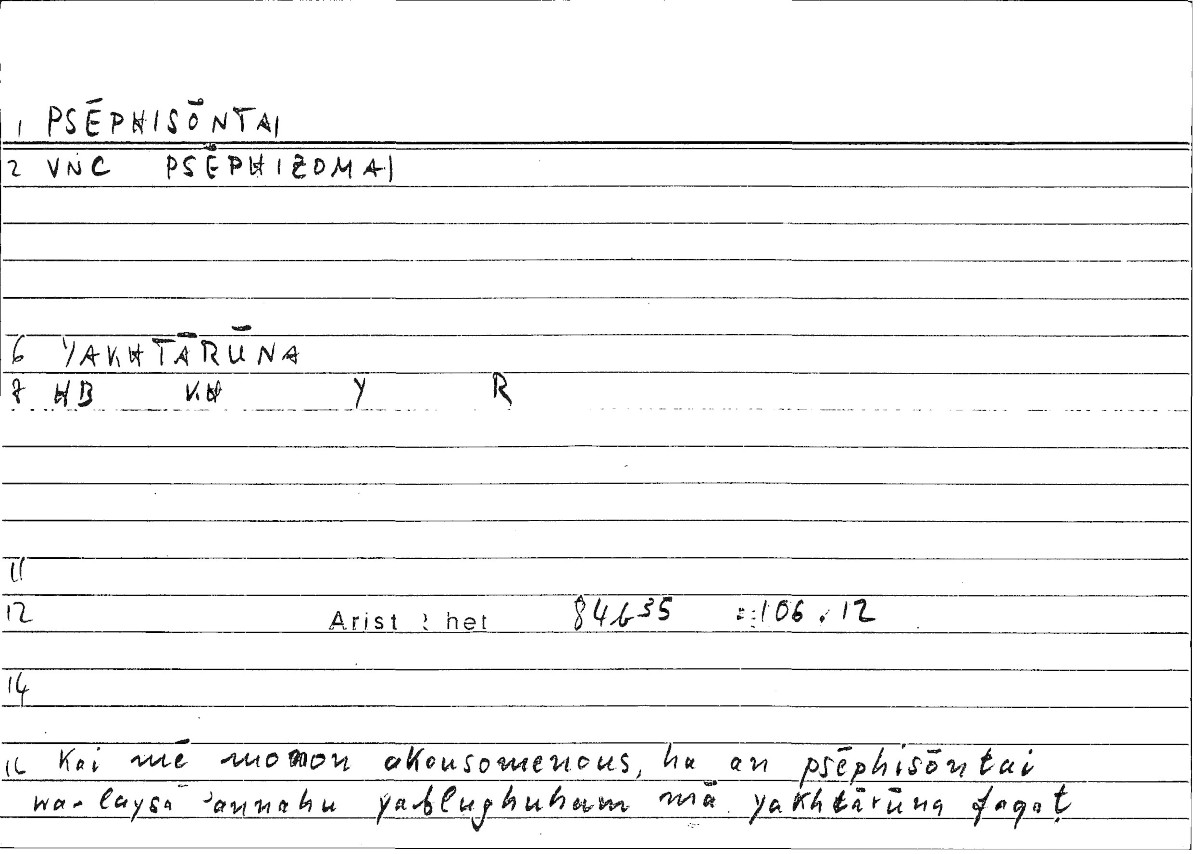 1 PSĒPHISŌNTAI
2 VNC PSĒPHIZOMAI
6 YAKHTĀRŪNA
7 HB KH Y R
11
12 Arist Rhet 84b35 =:106.12
14
16 Kai mē monon akousomenous, ha an psēphisōntai
wa-laysa ʾannahu yablughuhum mā yakhtārūna faqaṭ